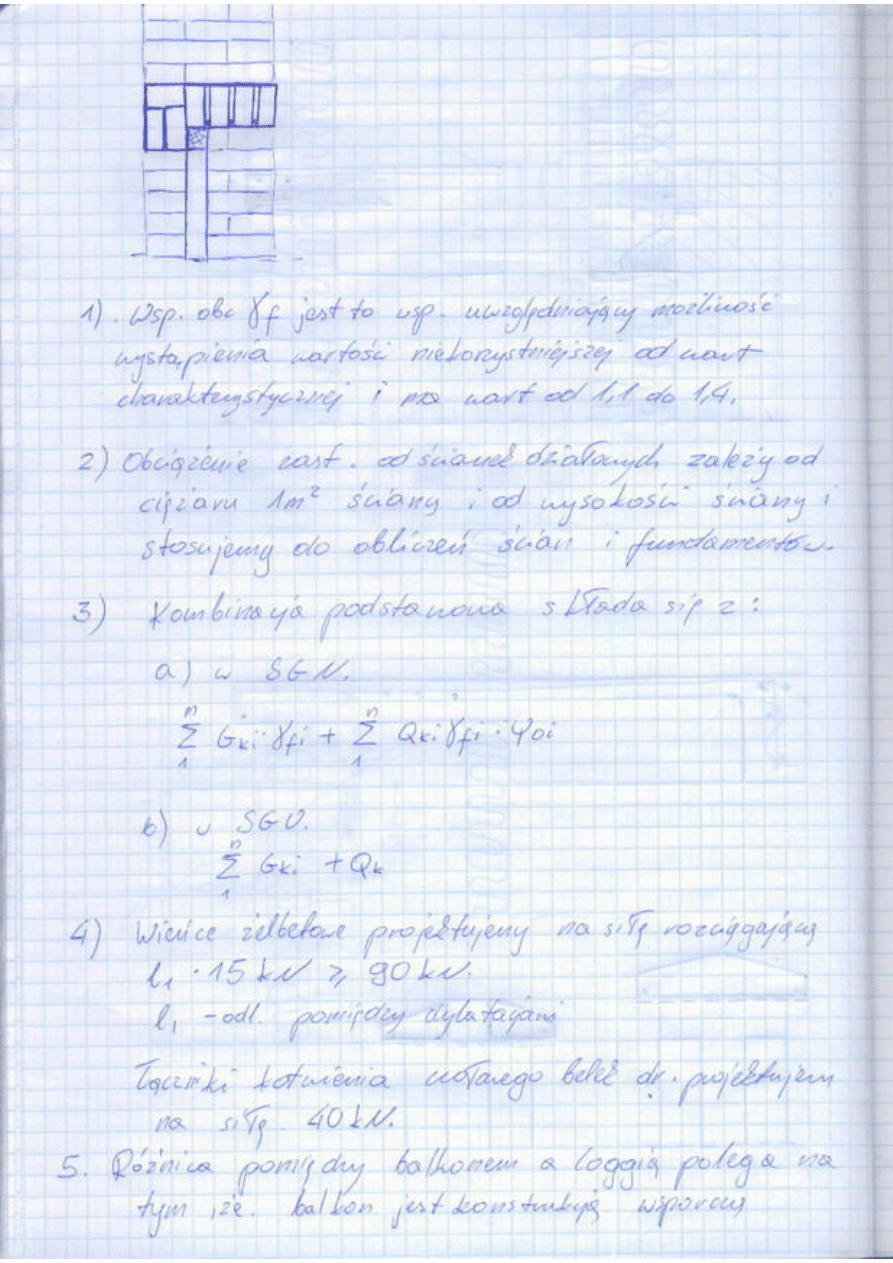 1). Wsp. obc γf jest to wsp. uwzględniający możliwość
wystąpienia wartości niekorzystniejszej od wart
charakterystycznej i ma wart od 1,1 do 1,4.
2) Obciążenie zast. od ścianek działowych zależy od
ciężaru 1m² ściany i od wysokości ściany i
stosujemy do obliczeń ścian i fundamentów.
3) Kombinacja podstawowa składa się z:
a) w SGN.
n Σ 1 Gki · γfi + n Σ 1 Qki γfi · Ψoi
b) w SGU.
n Σ 1 Gki + Qk
4) Wieńce żelbetowe projektujemy na siłę rozciągającą
l₁ · 15 kN ≥ 90 kN.
l₁ - odl. pomiędzy dylatacjami
Łączniki kotwienia belek dr. projektujem
na siłę 40 kN.
5. Różnica pomiędzy balkonem a loggią polega na
tym, że. balkon jest konstrukcją wsporczą